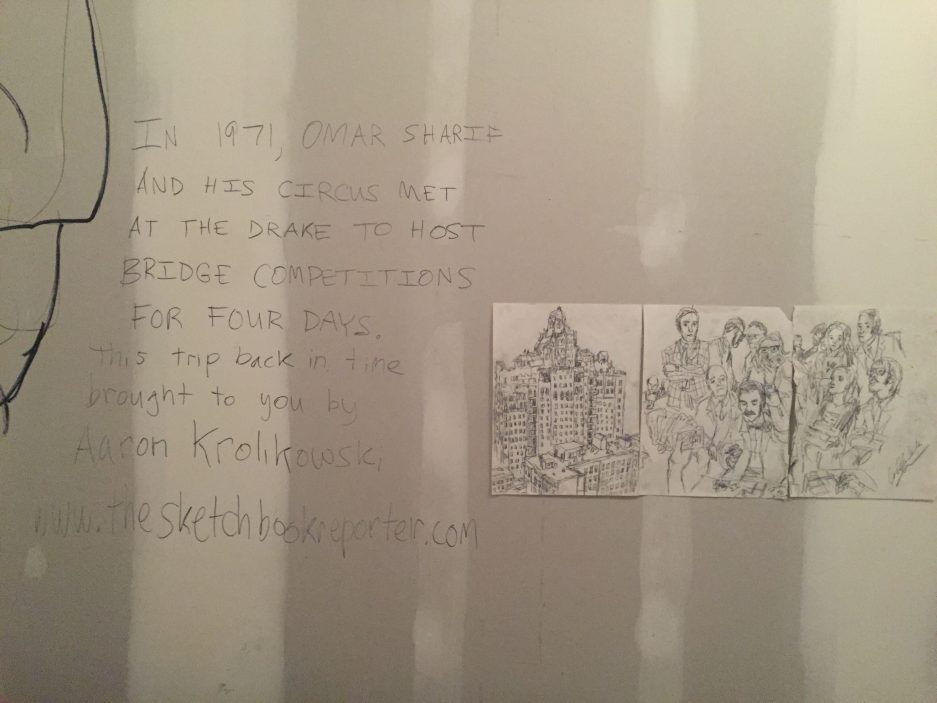 IN 1971, OMAR SHARIF
AND HIS CIRCUS MET
AT THE DRAKE TO HOST
BRIDGE COMPETITIONS
FOR FOUR DAYS.
This trip back in time
brought to you by
Aaron Krolikowski,
www.thesketchbookreporter.com